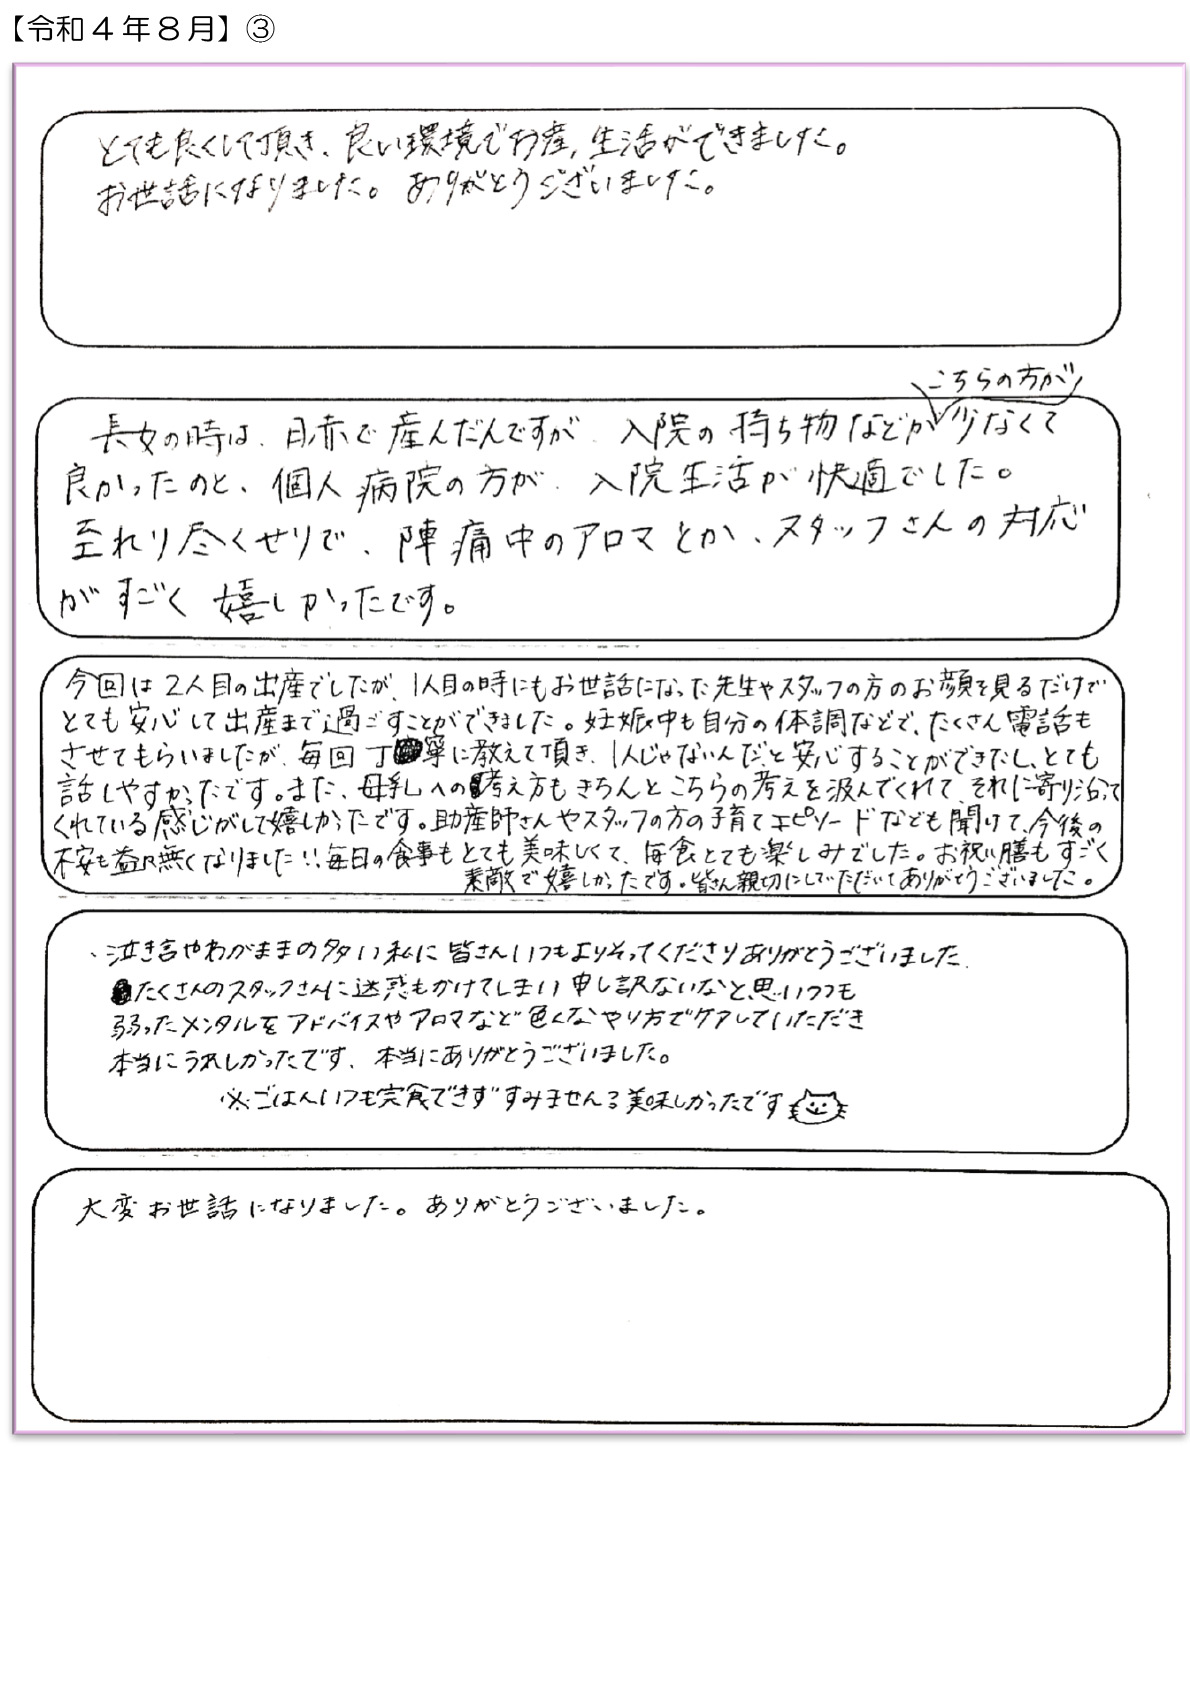 【令和４年８月】③
とても良くして頂き、良い環境でお産,生活ができました。
お世話になりました。ありがとうございました。
こちらの方が
長女の時は、日赤で産んだんですが、入院の持ち物などが少なくて
良かったのと、個人病院の方が、入院生活が快適でした。
至れり尽くせりで、陣痛中のアロマとか、スタッフさんの対応
がすごく嬉しかったです。
今回は2人目の出産でしたが、1人目の時にもお世話になった先生やスタッフの方のお顔を見るだけで
とても安心して出産まで過ごすことができました。妊娠中も自分の体調などで、たくさん電話も
させてもらいましたが、毎回丁寧に教えて頂き、1人じゃないんだと安心することができたし、とても
話しやすかったです。また、母乳への考え方もきちんとこちらの考えを汲んでくれて、それに寄り沿って
くれている感じがして嬉しかったです。助産師さんやスタッフの方の子育てエピソードなども聞けて、今後の
不安も益々無くなりました!!毎日の食事もとても美味しくて、毎食とても楽しみでした。お祝い膳もすごく
素敵で嬉しかったです。皆さん親切にしていただいてありがとうございました。
、泣き言やわがままの多い私に皆さんいつもよりそってくださりありがとうございました.
たくさんのスタッフさんに迷惑もかけてしまい申し訳ないなと思いつつも
弱ったメンタルをアドバイスやアロマなど色んなやり方でケアしていただき
本当にうれしかったです、本当にありがとうございました。
※ごはんいつも完食できずすみません。美味しかったです
大変お世話になりました。ありがとうございました。